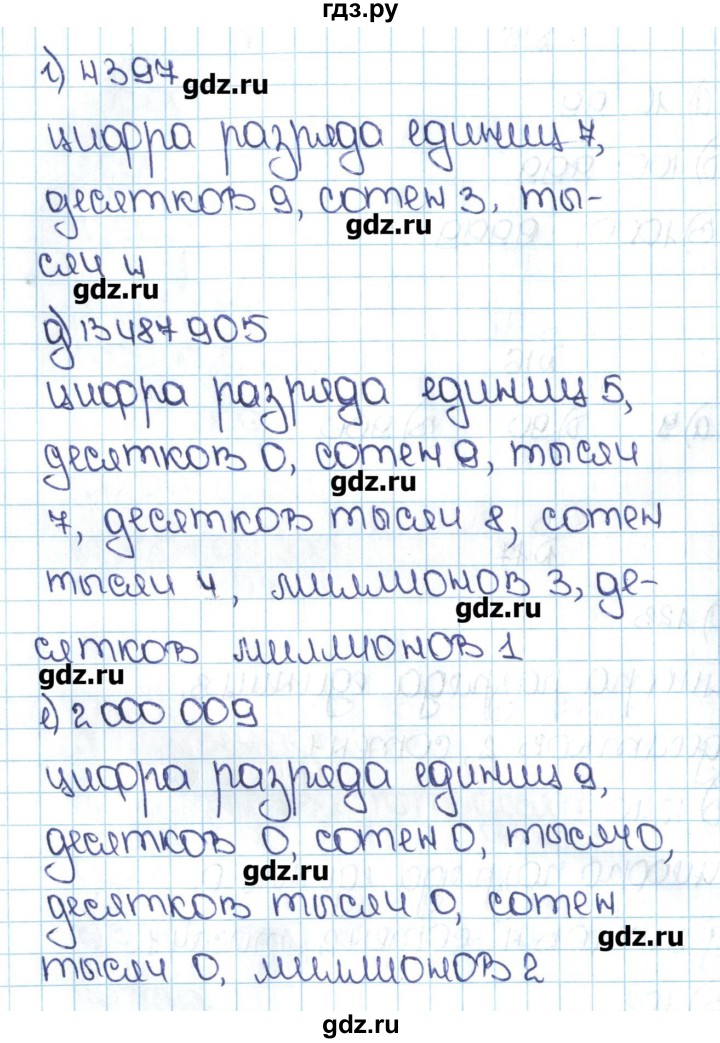 гдз.ру
г) 4397
gdz.ru
цифра разряда единиц 7,
десятков 9, сотен 3, ты-
gdz.ru
сяч 4
gdz.ru
д) 13 487 905
цифра разряда единиц 5,
десятков 0, сотен 9, тысяч
gdz.ru
7, десятков тысяч 8, сотен
тысяч 4, миллионов 3, де-
gdz.ru
сятков миллионов 1
gdz.ru
е) 2 000 009
цифра разряда единиц 9,
десятков 0, сотен 0, тысяч 0,
gdz.ru
десятков тысяч 0, сотен
gdz.ru
тысяч 0, миллионов 2
gdz.ru